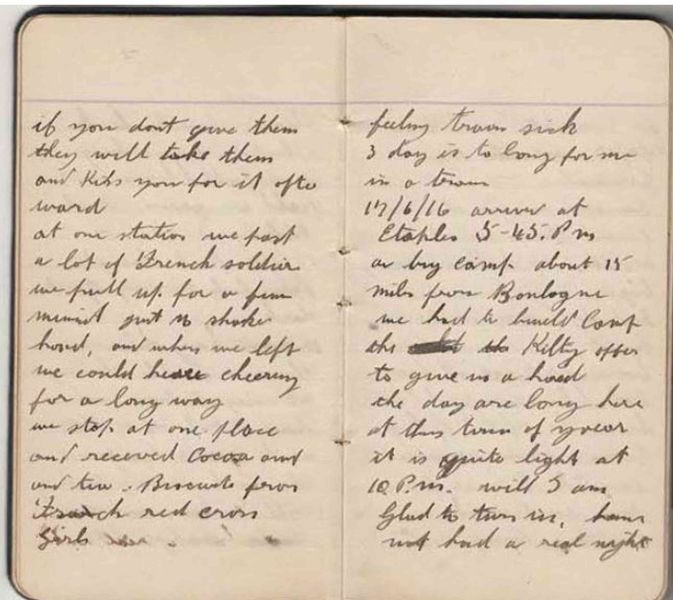 if you dont give them
they will take them
and Kiss you for it after
ward
at one station we past
a lot of French soldier
we pull up for a few
minuit just to shake
hand, and when we left
we could hear cheering
for a long way
we stop at one place
and received Cocoa and
and tea. Biscuits from
French red cross
Girls
feeling train sick
3 day is to long for me
in a train
17/6/16 arrive at
Etaples 5-45. Pm
a big camp about 15
miles from Boulogne
we had to build Camp
the Kilty offer
to give us a hand
the day are long here
at this time of year
it is quite light at
10 P.m. will 3 am
Glad to turn in, have
not had a real night